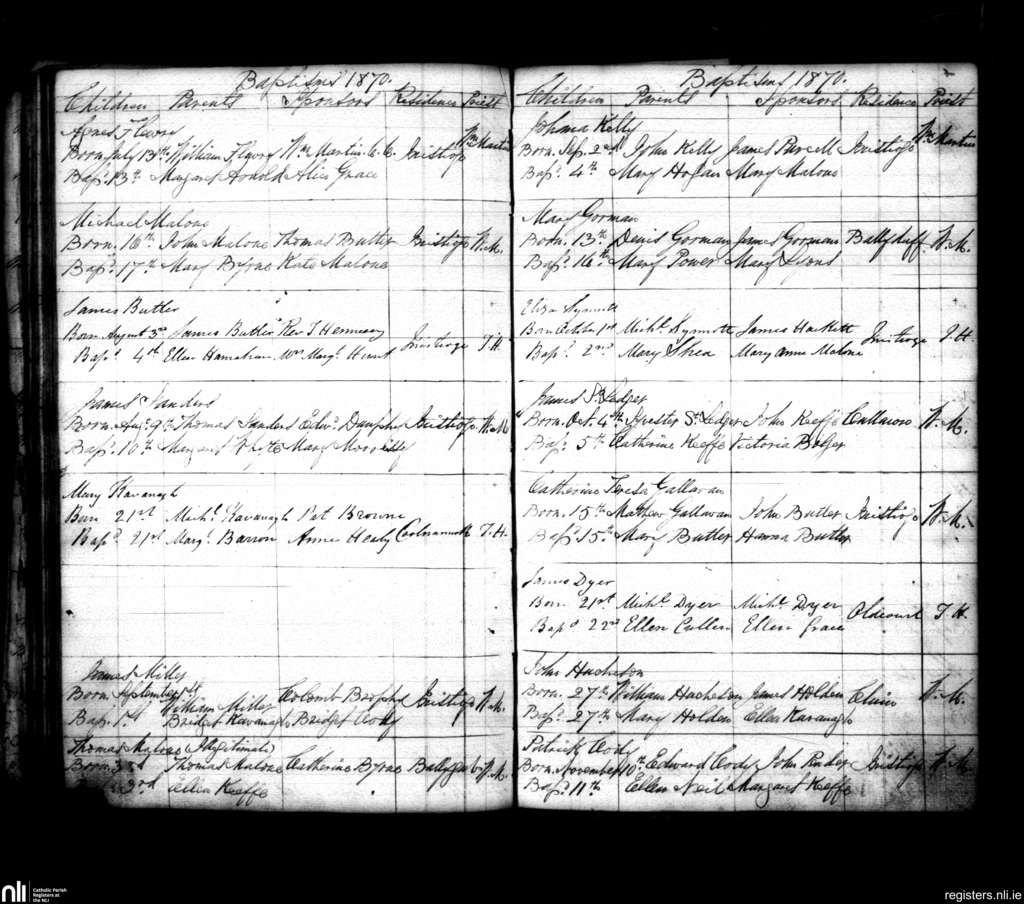 Baptisms 1870.
Children Parents Sponsors Residence Priest
Agnes
Born July 13th William Wm Martin C.C. Inistioge Wm Martin
Bapd. 13th Margaret Arnold Alice Grace
Michael Malone
Born. 16th John Malone Thomas Butler Inistioge W.M.
Bapd. 17th Mary Byrne Kate Malone
James Butler
Born August 3rd James Butler Rev T Hennessy
Bapd. 4th Ellen Hanrahan Mrs Margt. Hunt Inistioge T.H.
James Sanders
Born Aug. 9th Thomas Sanders Edwd. Inistioge W.M
Bapd. 10th Margaret Mary
Mary Kavanagh
Born 21st Michl. Kavanagh Pat Browne
Bapd. 21st Margt. Barron Anne Healy T.H.
James Miller
Born September 1st William Miller Colomb Brophy Inistioge W.M.
Bapd. 1st Bridget Kavanagh Bridget Cody
Thomas Malone (Illegitimate)
Born 3rd Thomas Malone Catherine Byrne W.M.
3rd Ellen Keeffe
Baptisms 1870.
Children Parents Sponsors Residence Priest
Johma Kelly
Born. Sep. 2nd John Kelly James Purcell Inistioge Wm Martin
Bapd. 4th Mary Hogan Mary Malone
Mary Gorman
Born. 13th Denis Gorman James Gorman Ballyduff W.M.
Bapd. 16th Mary Power Mary Lyons
Eliza
Born October 1st Michl. James Hackett Inistioge T.H.
Bapd. 2nd Mary Shea Mary Anne Malone
James St Ledger
Born. Oct. 4th Sylvester St. Ledger John Keeffe Cullaune W.M.
Bapd. 5th Catherine Keeffe Victoria Bolger
Catherine Teresa Gallavan
Born. 15th Mathew Gallavan John Butler Inistioge W.M.
Bapd. 15th Mary Butler Hanna Butler
James Dyer
Born 21st Michl. Dyer Michl. Dyer Oldcourt T.H.
Bapd 22nd Ellen Cullen Ellen Grace
John Hacheson
Born. 27th William Hacheson James Holden Cluin W.M.
Bapd. 27th Mary Holden Ellen Kavanagh
Patrick Cody
Born November 10th Edward Cody John Inistioge W.M
Bapd. 11th Ellen Neil Margaret Keeffe
nli Catholic Parish
Registers at
the NLI
registers.nli.ie